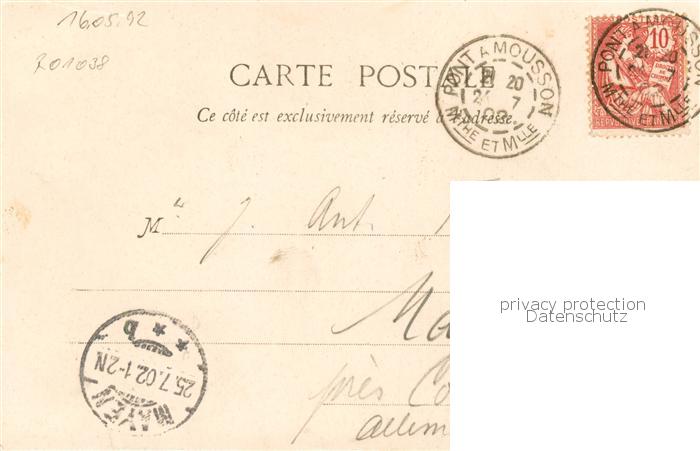 16.05.92
R01038
CARTE POSTALE
Ce côté est exclusivement réservé à l'adresse.
PONT A MOUSSON
20
7
02
MTHE ET MLLE
10
PONT A MOUSSON
MTHE ET MLLE
M J. Ant.
Ma
près Co
Allem
MAYEN
25.7.02.1-2N
* * b
privacy protection
Datenschutz